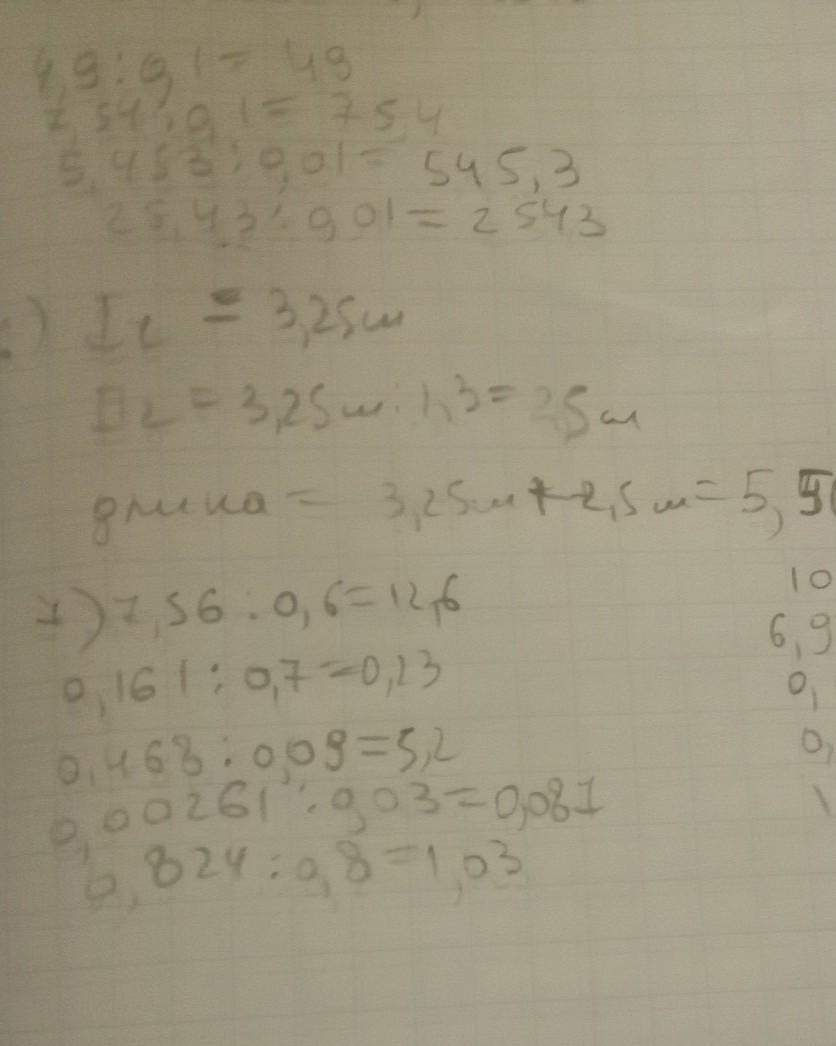 4,9:0,1= 49
7,54:0,1= 75,4
5,453:0,01= 545,3
25,43:0,01=2543
I с = 3,25 м
II с = 3,25 м : 1,3 = 2,5 м
длина = 3,25 м + 2,5 м = 5,
7) 7,56:0,6=12,6
0,161:0,7=0,23
0,468:0,09=5,2
0,00261:0,03=0,081
0,824:0,8=1,03
10
6,9
0,
0,
1